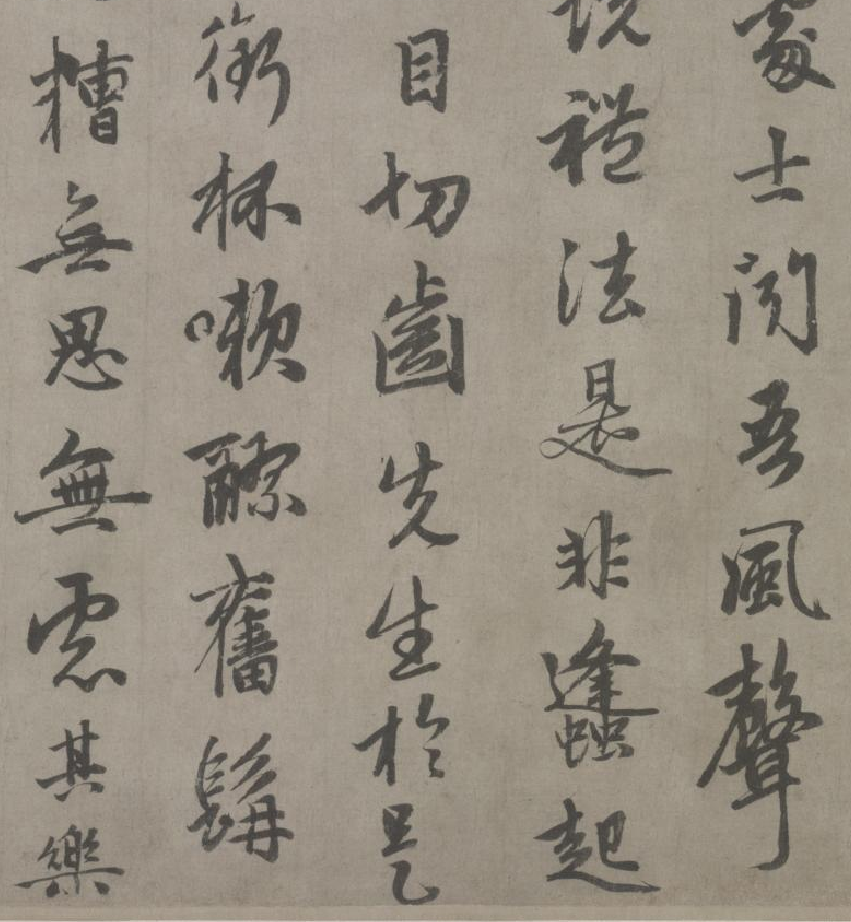 處士聞吾風聲
說禮法是非蠭起
目切齒先生於是
銜杯嗽醪奮髯
糟無思無慮其樂